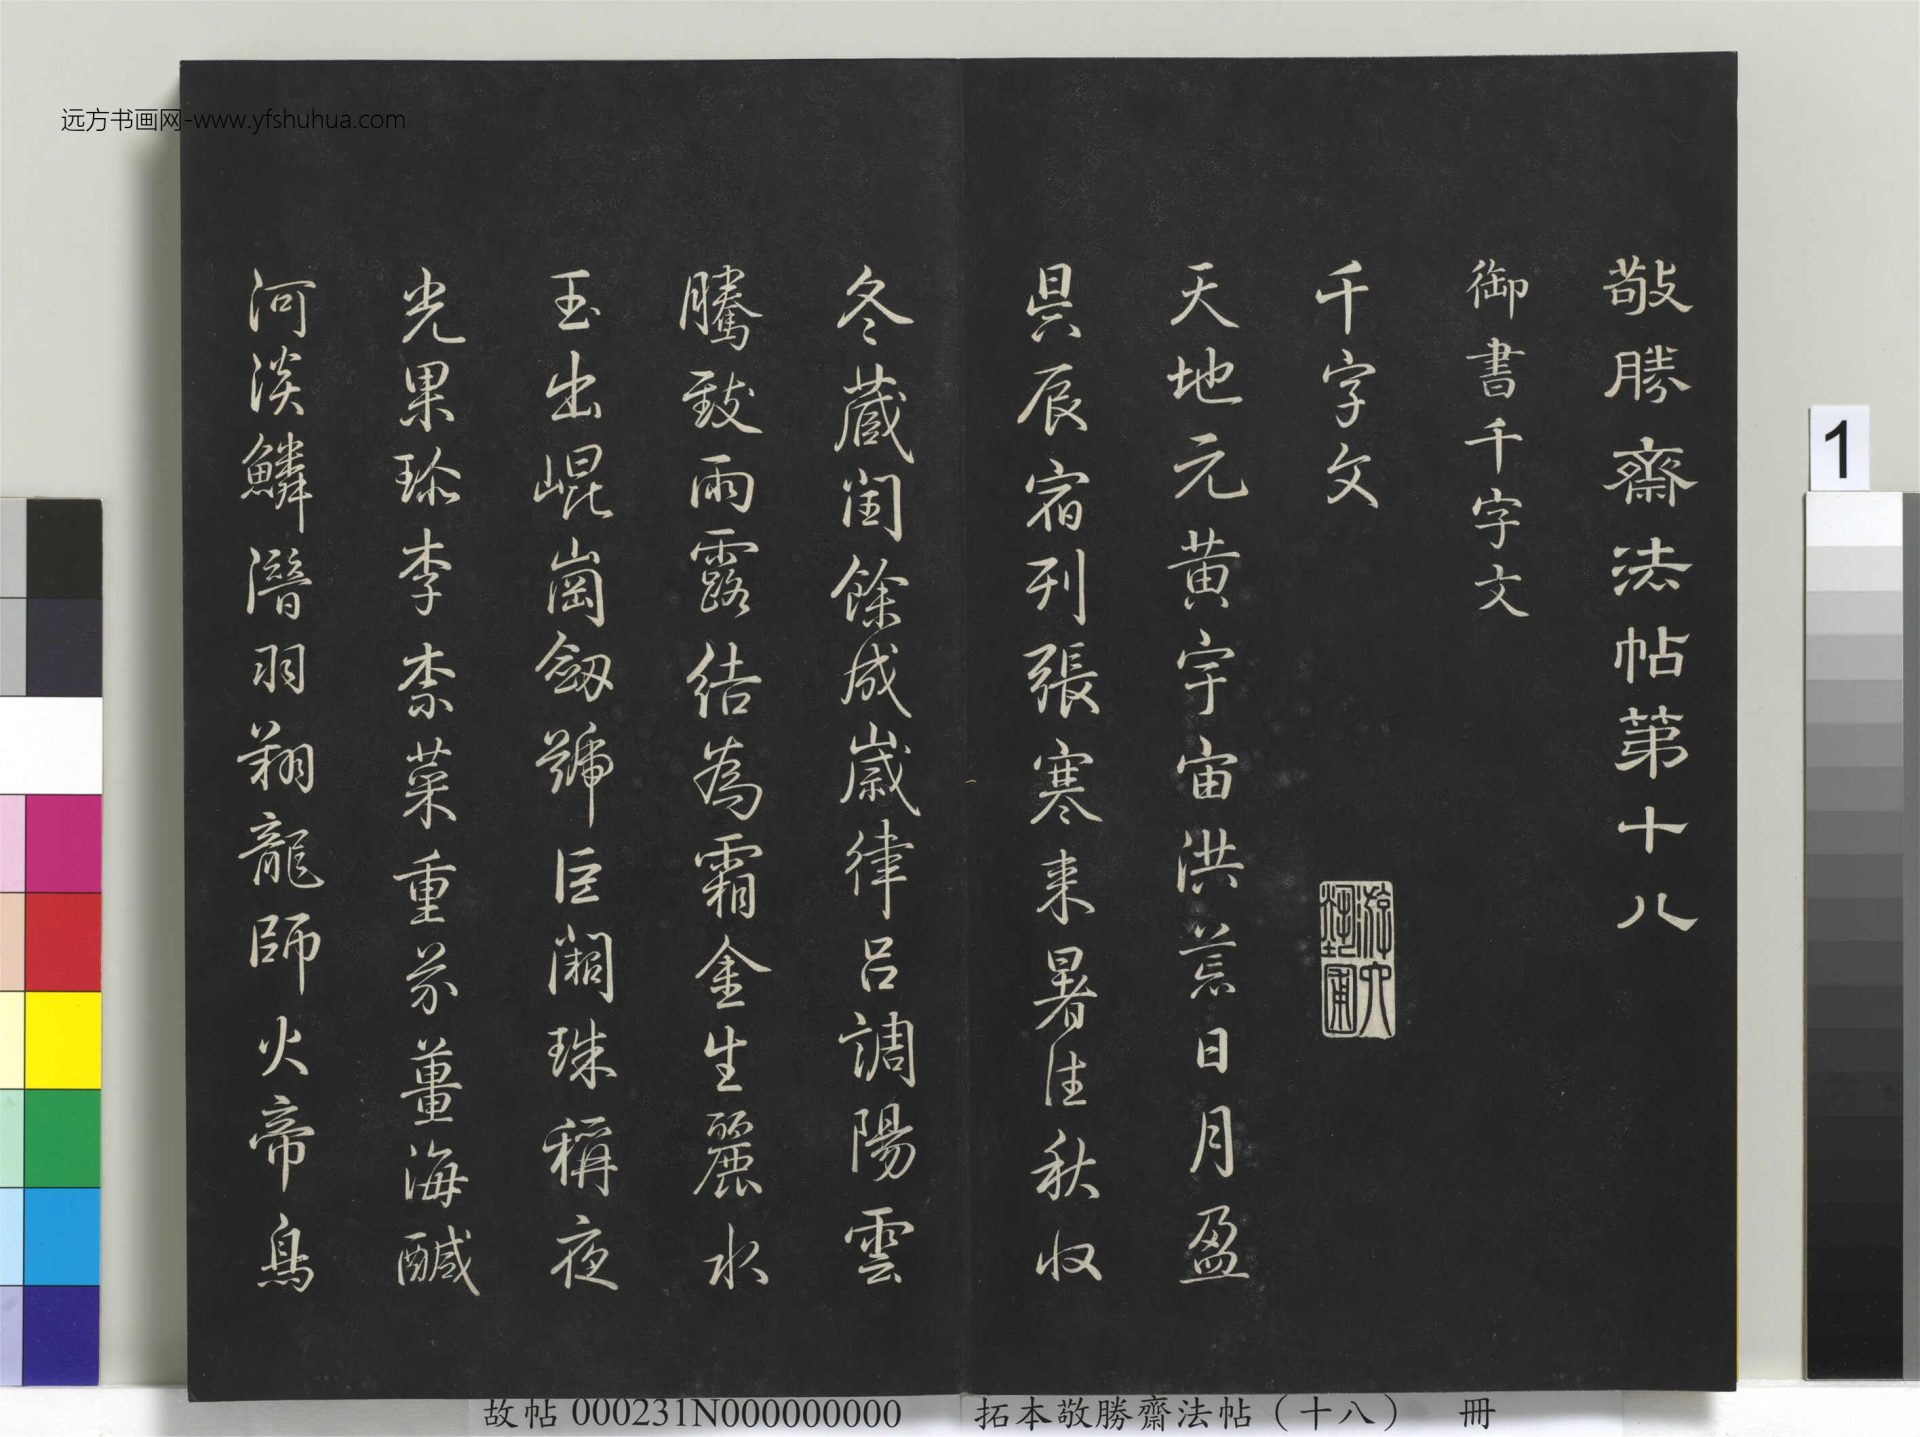 敬勝齋法帖第十八
御書千字文
千字文
天地元黃宇宙洪荒日月盈
昃辰宿列張寒来暑往秋收
冬蔵閏餘成歲律呂調陽雲
騰致雨露結為霜金生麗水
玉出崐崗劔號巨闕珠稱夜
光果珎李柰菜重芥薑海醎
河淡鱗潛羽翔龍師火帝鳥
游六藝圃
远方书画网-www.yfshuhua.com
1
故帖 000231N000000000 拓本敬勝齋法帖（十八） 冊